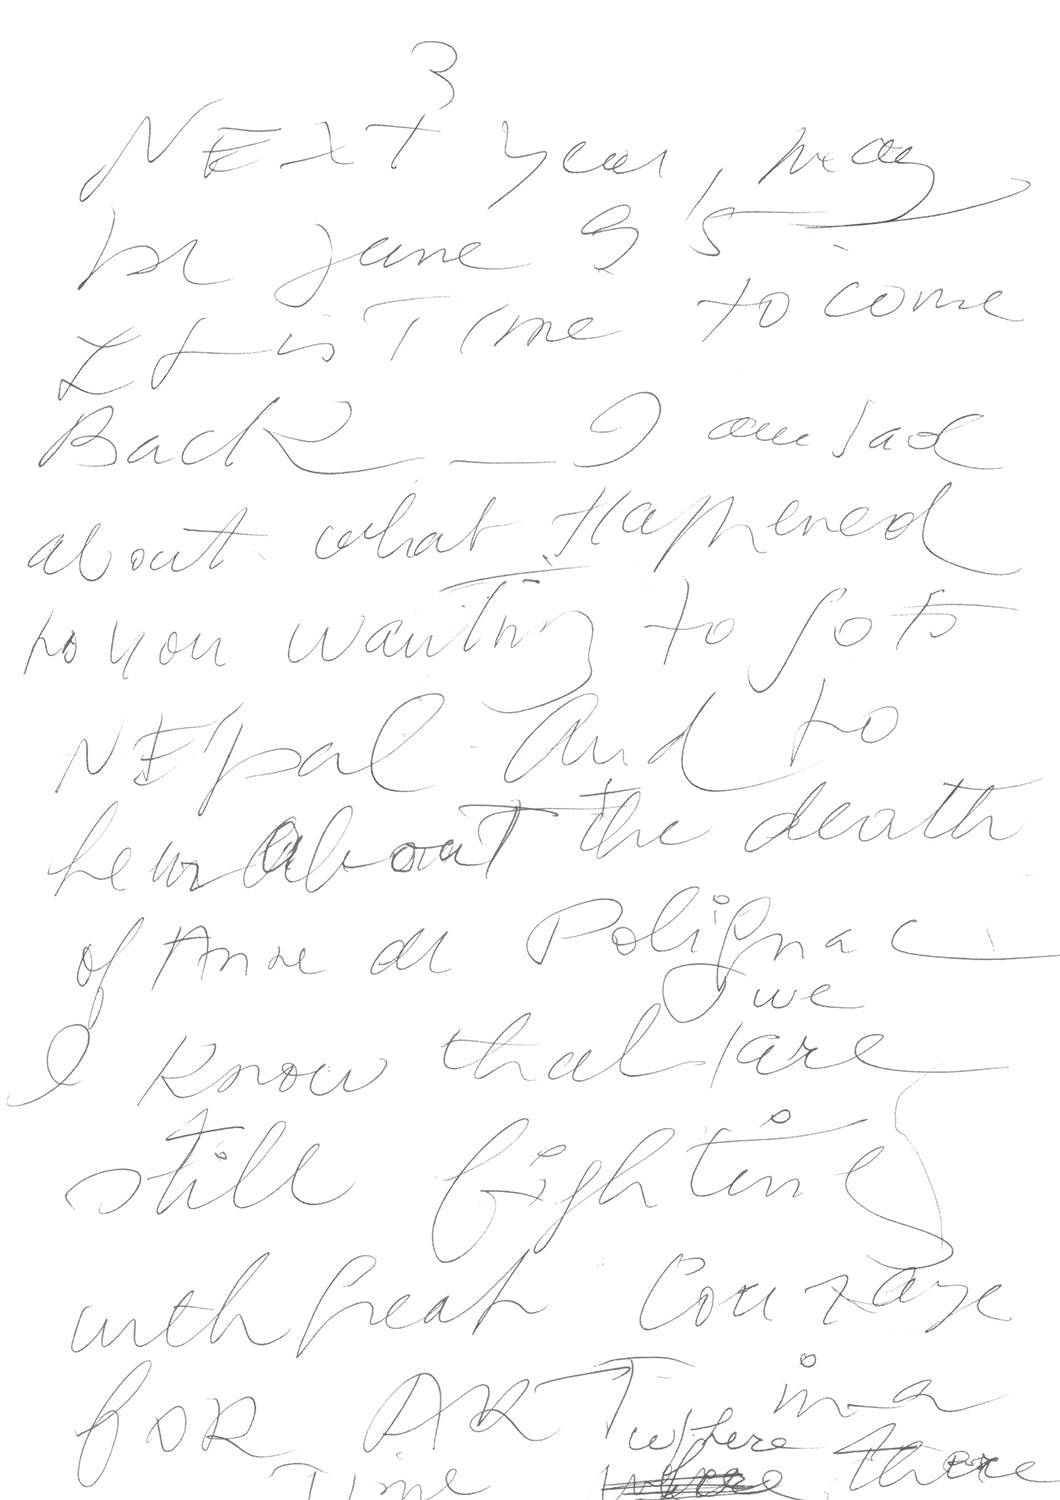 3
NEXT year, may
be June 95
It is Time to come
Back — I am sad
about what Happened
to you wanting to go to
NEpal And to
hear about the death
of Anne de Polignac
we
I know that / are
still fighting
with great Courage
FOR ART in a
Time where there